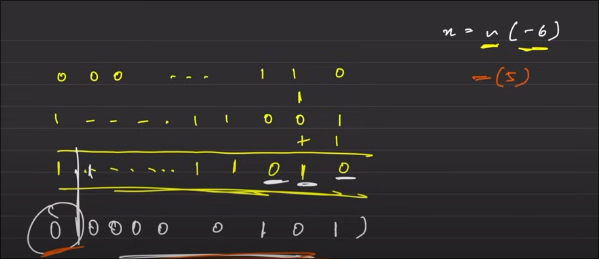 x = ~ (-6)
= -(5)
0 0 0 - - - 1 1 0
1
1 - - - - 1 1 0 0 1
+ 1
1 - - - - - 1 1 0 1 0
0 0 0 0 0 0 1 0 1 )